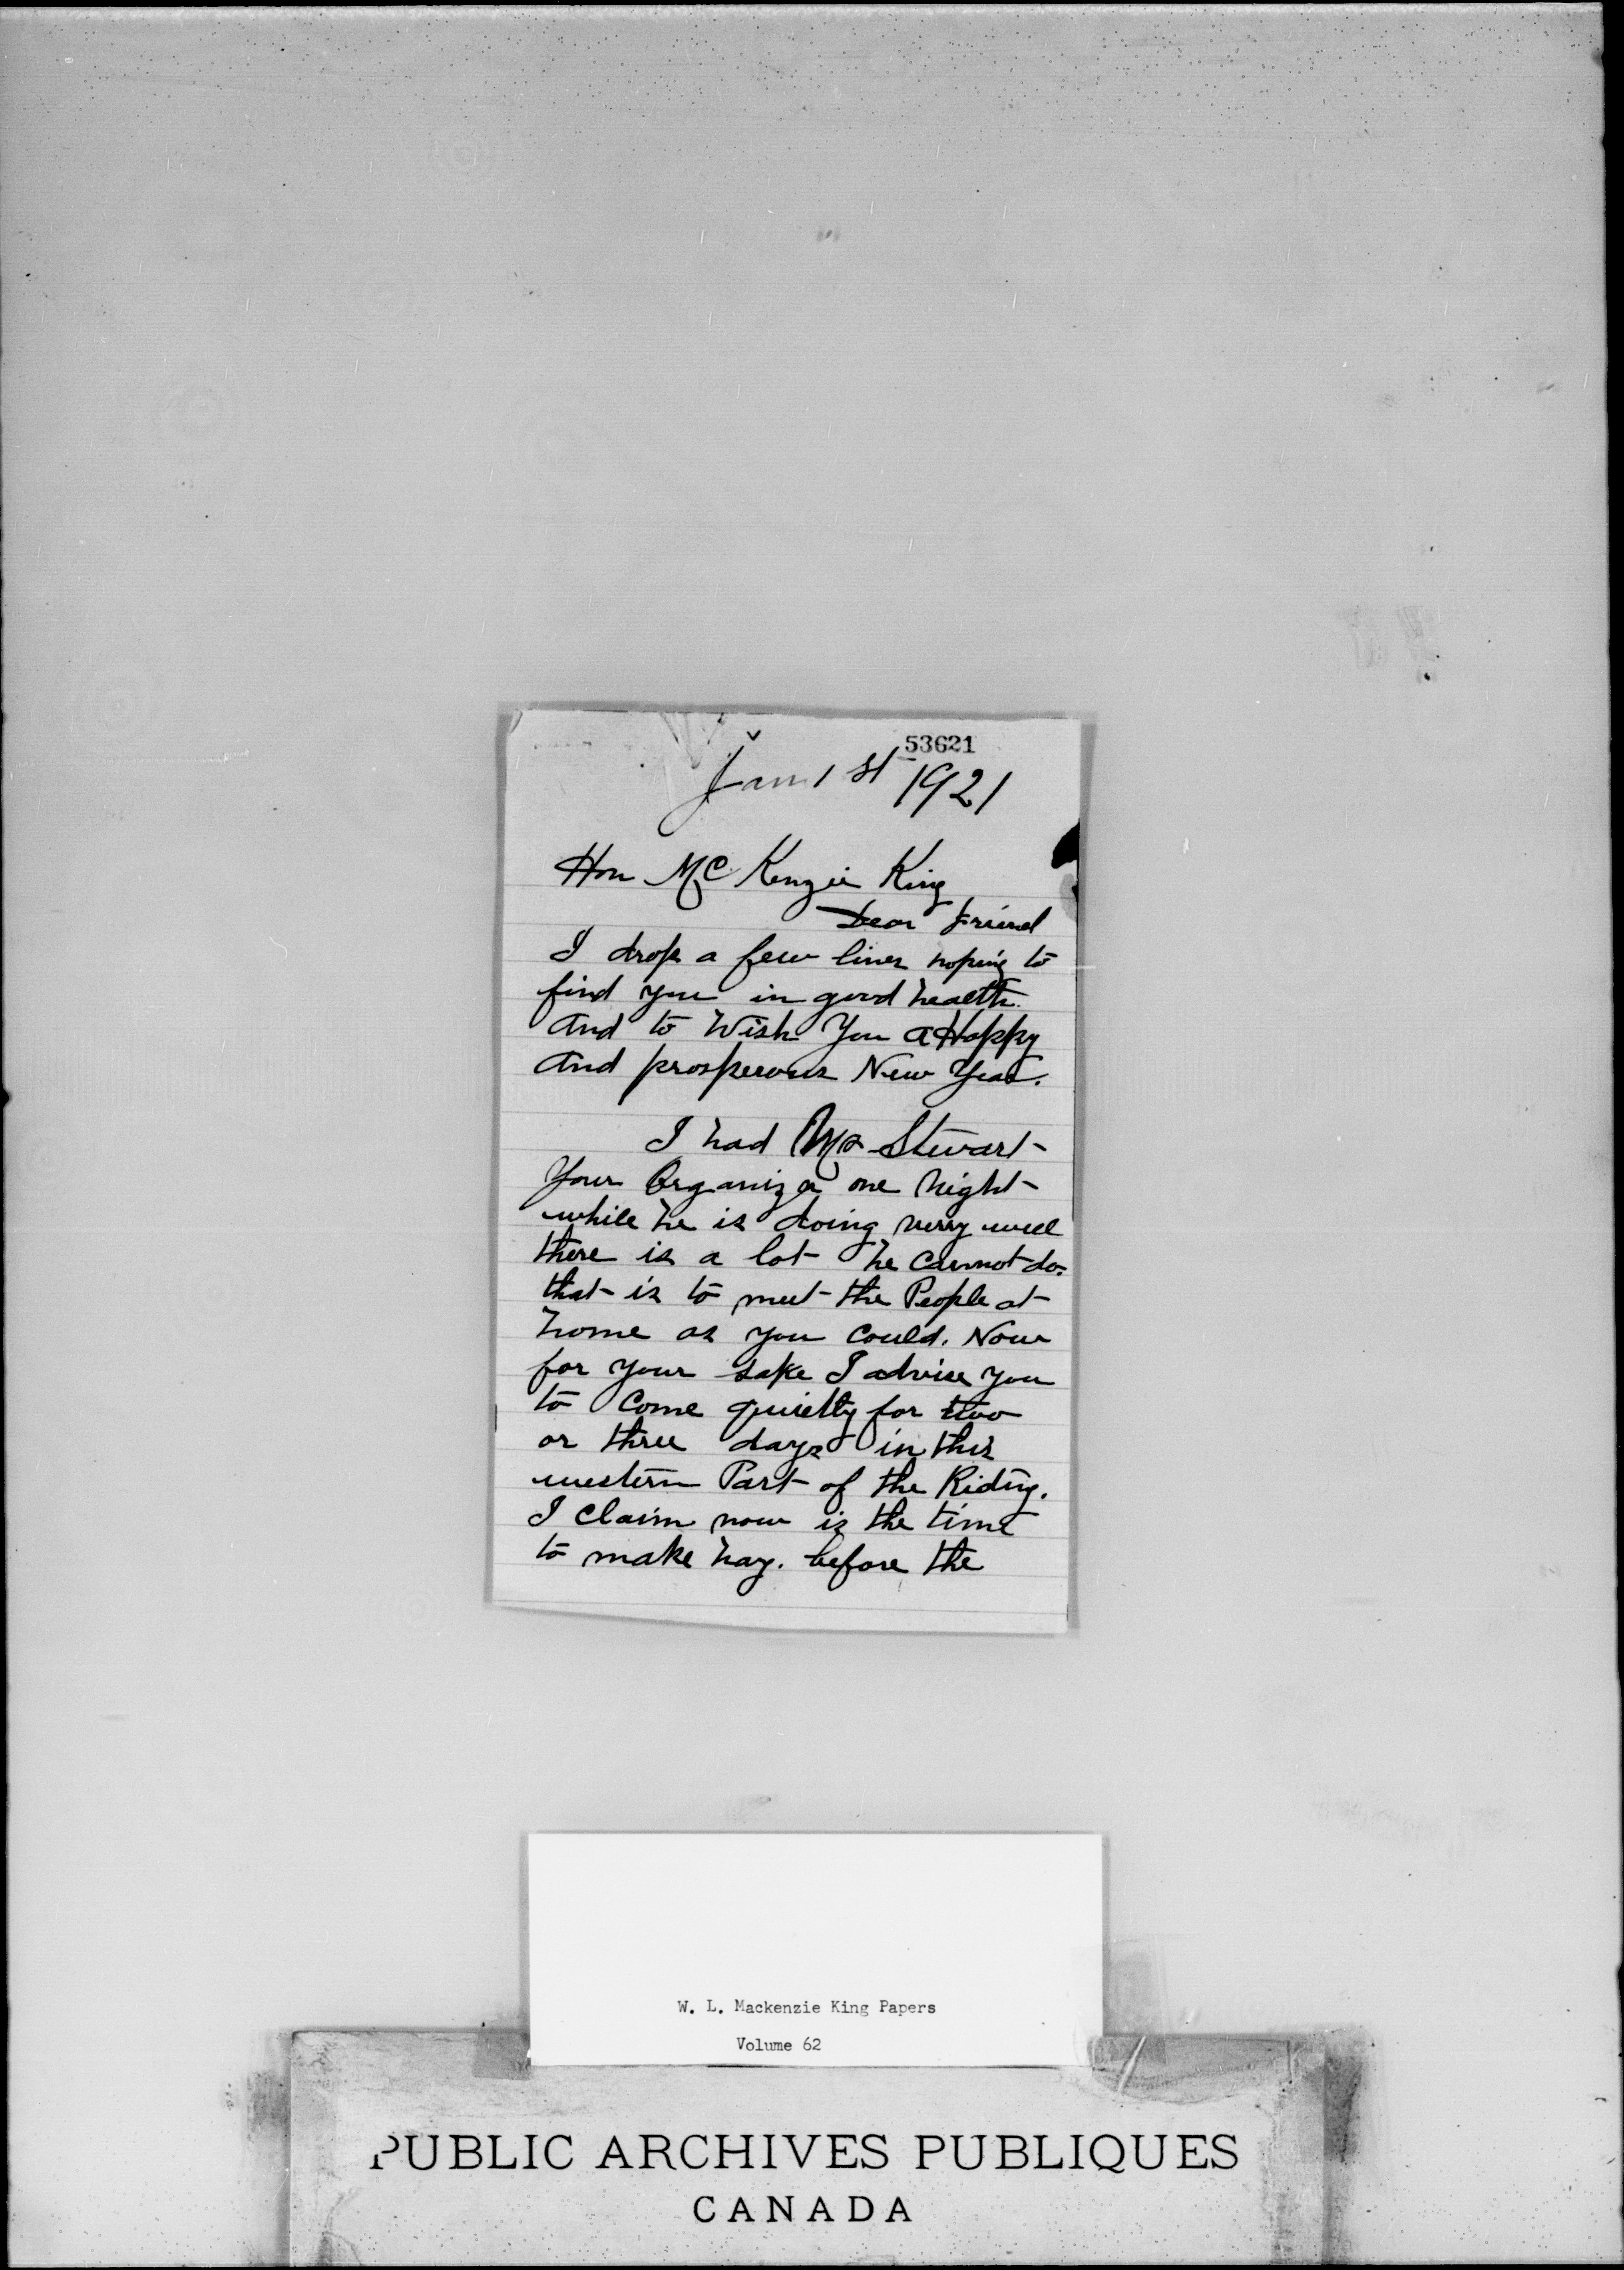 53621
Jan 1st 1921
Hon McKenzie King
Dear Friend
I drop a few lines hoping to
find you in good health.
And to Wish You a Happy
And prosperous New Year.
I had Mr Stewart
Your Organizer one night
while he is doing verry well
there is a lot he cannot do.
that is to meet the People at
home as you could. Now
for your sake I advise you
to Come quietly for two
or three days in this
western Part of the Riding.
I Claim now is the time
to make hay. before the
W. L. Mackenzie King Papers
Volume 62
PUBLIC ARCHIVES PUBLIQUES
CANADA